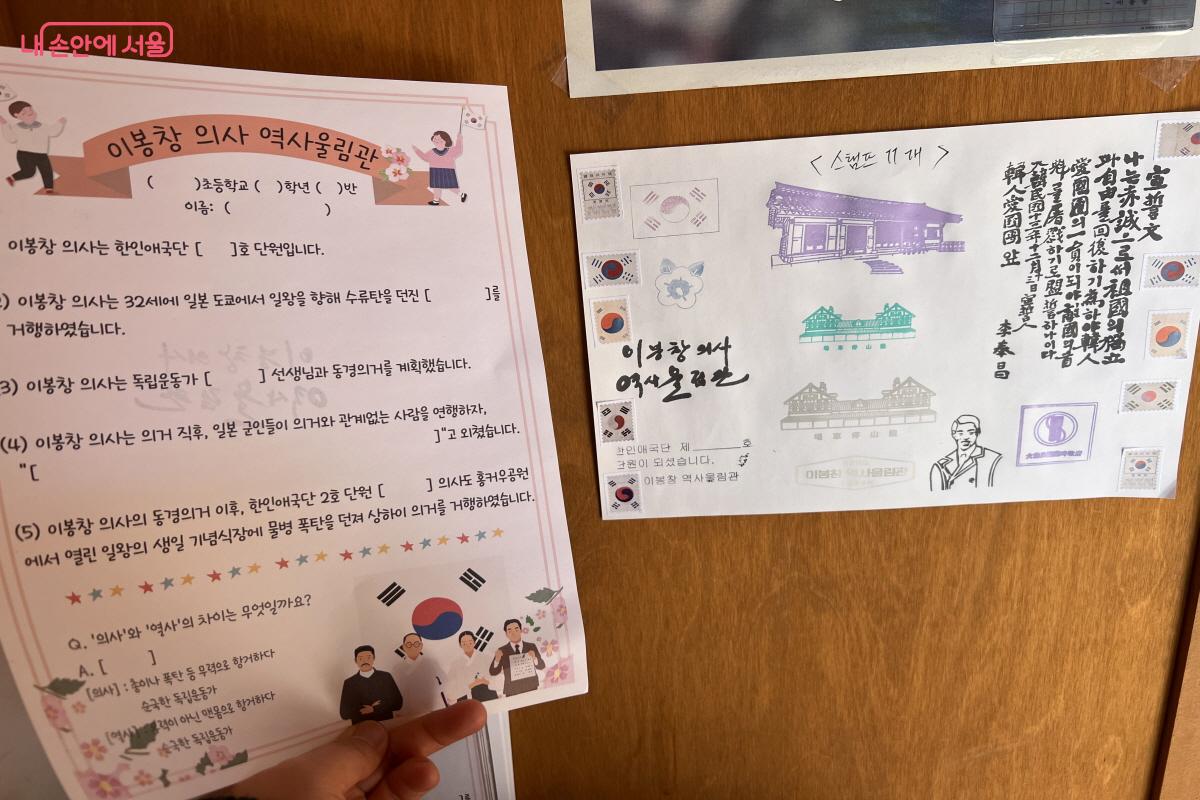 내 손안에 서울
이봉창 의사 역사울림관
( )초등학교 ( )학년 ( )반
이름: ( )
이봉창 의사는 한인애국단 [ ]호 단원입니다.
2) 이봉창 의사는 32세에 일본 도쿄에서 일왕을 향해 수류탄을 던진 [ ]를
거행하였습니다.
3) 이봉창 의사는 독립운동가 [ ] 선생님과 동경의거를 계획했습니다.
(4) 이봉창 의사는 의거 직후, 일본 군인들이 의거와 관계없는 사람을 연행하자,
"[ ]"고 외쳤습니다.
(5) 이봉창 의사의 동경의거 이후, 한인애국단 2호 단원 [ ] 의사도 훙커우공원
에서 열린 일왕의 생일 기념식장에 물병 폭탄을 던져 상하이 의거를 거행하였습니다.
Q. '의사'와 '역사'의 차이는 무엇일까요?
A. [ ]
[의사] : 총이나 폭탄 등 무력으로 항거하다
순국한 독립운동가
이 아닌 맨몸으로 항거하다
순국한 독립운동가
<스탬프 11개>
이봉창 의사
역사울림관
한인애국단 제 호
단원이 되셨습니다.
이봉창 역사울림관
場車停山龍
場車停山龍
이봉창 역사울림관
宣誓文
나는赤誠으로써祖國의獨立
과自由를回復하기爲하야韓人
愛國團의一員이되야敵國의首
魁를屠戮하기로盟誓하나이다
大韓民國十三年十二月十三日 宣誓人
韓人愛國團 앞 李奉昌